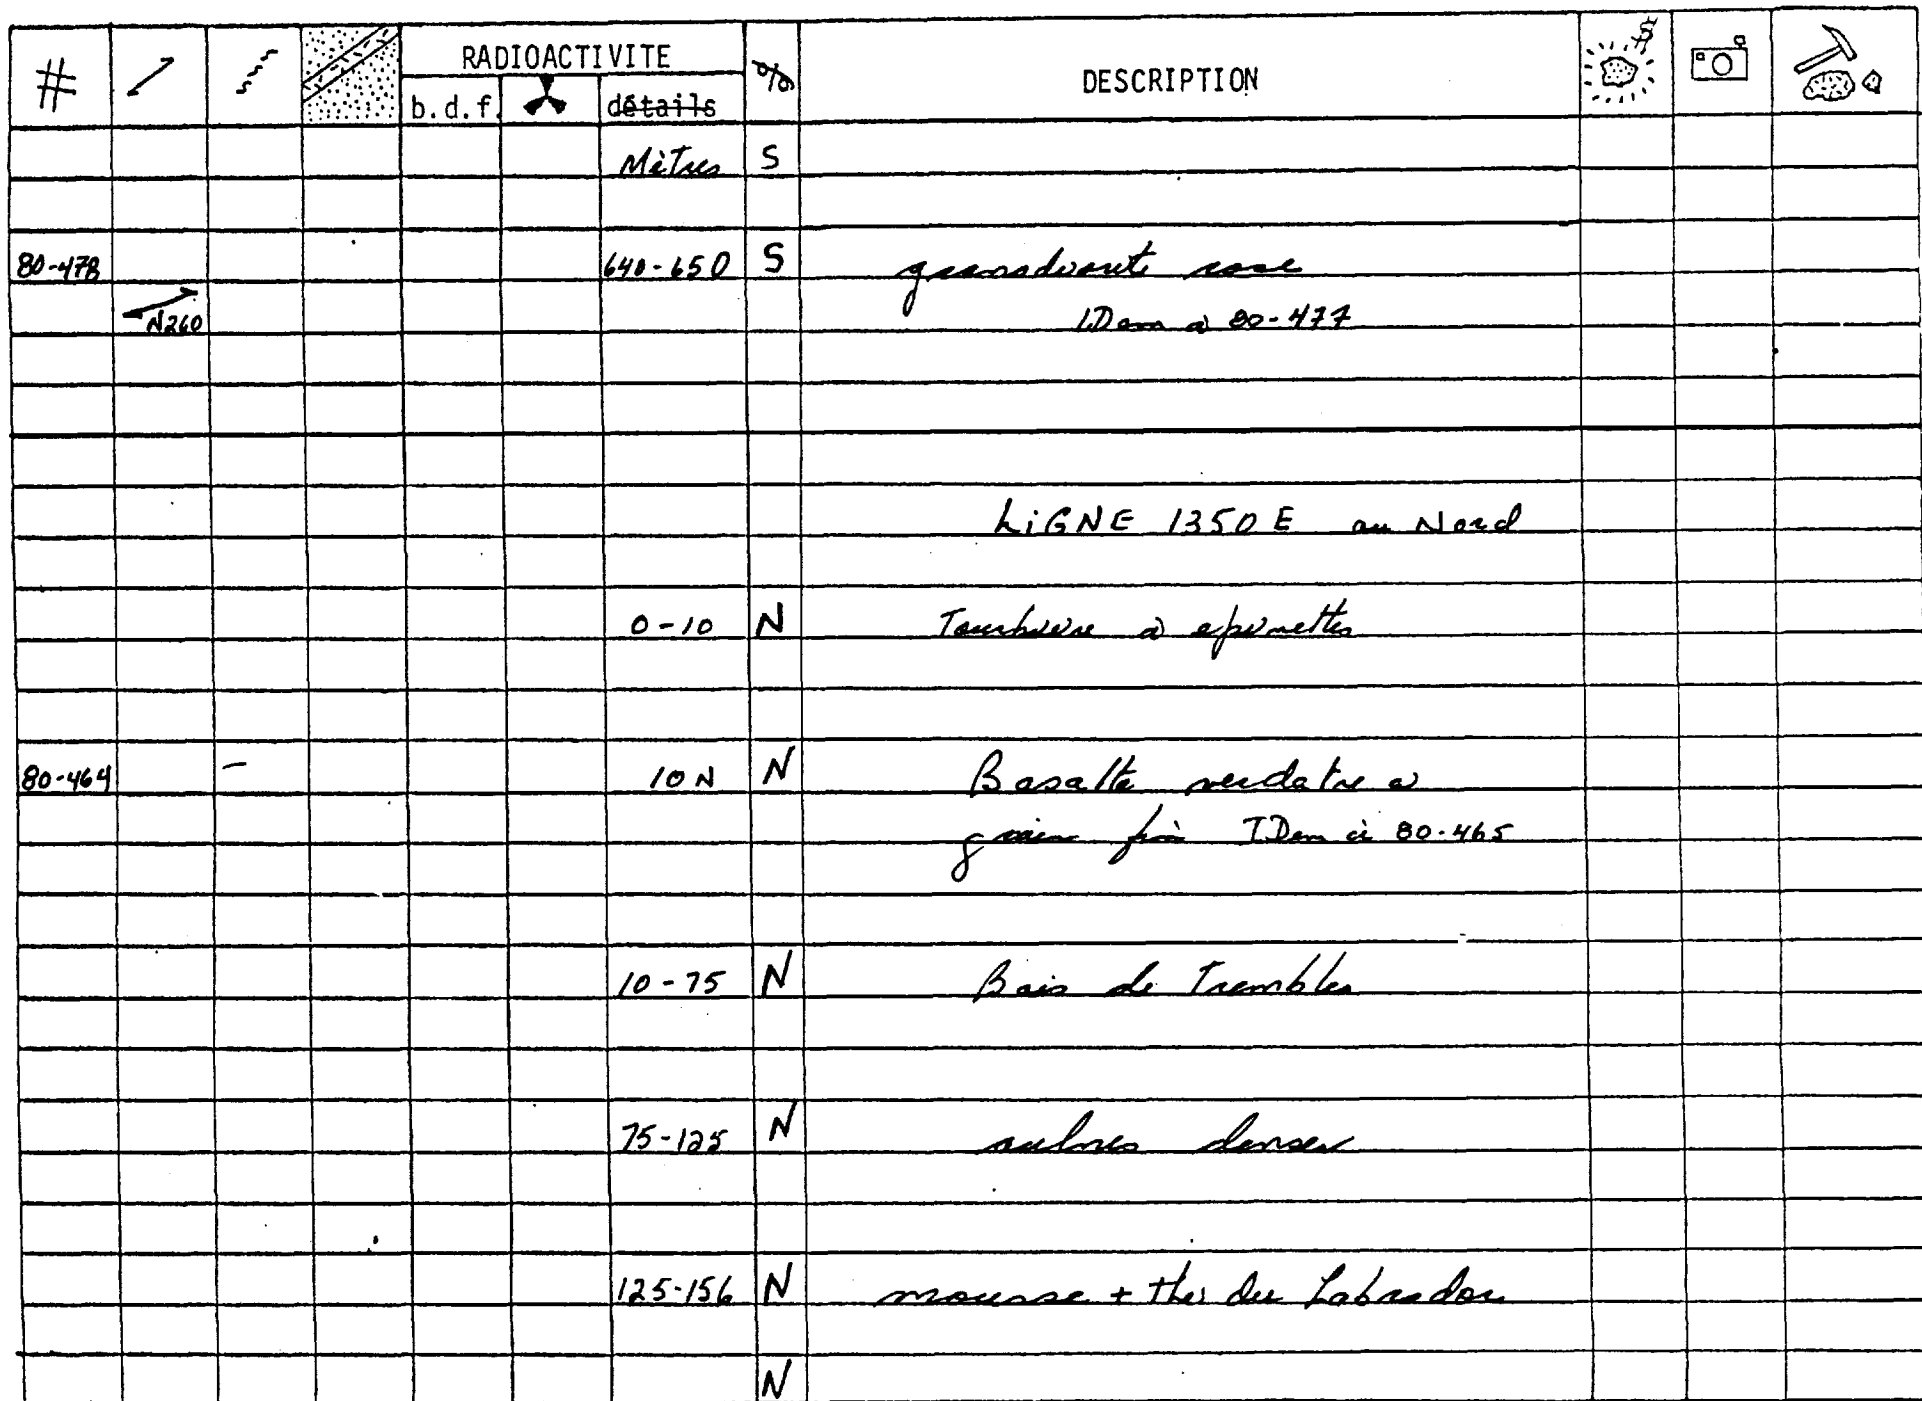 # RADIOACTIVITE % DESCRIPTION $
b.d.f. détails
Mètres S
80-478 640-650 S granodiorite rose
N260 IDem à 80-477
LiGNE 1350 E au Nord
0-10 N Tourbière à epinettes
80-464 - 10 N N Basalte verdatre a
grain fin IDem à 80-465
10-75 N Bois de Trembles
75-125 N aulnes denses
125-156 N mousse + thé du Labrador
N